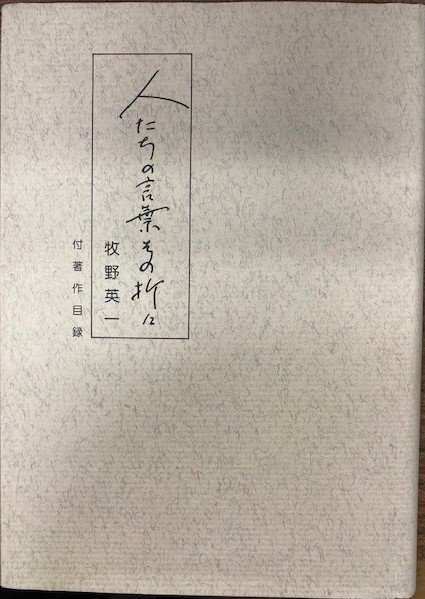 人たちの言葉その折に
牧野英一
付著作目録